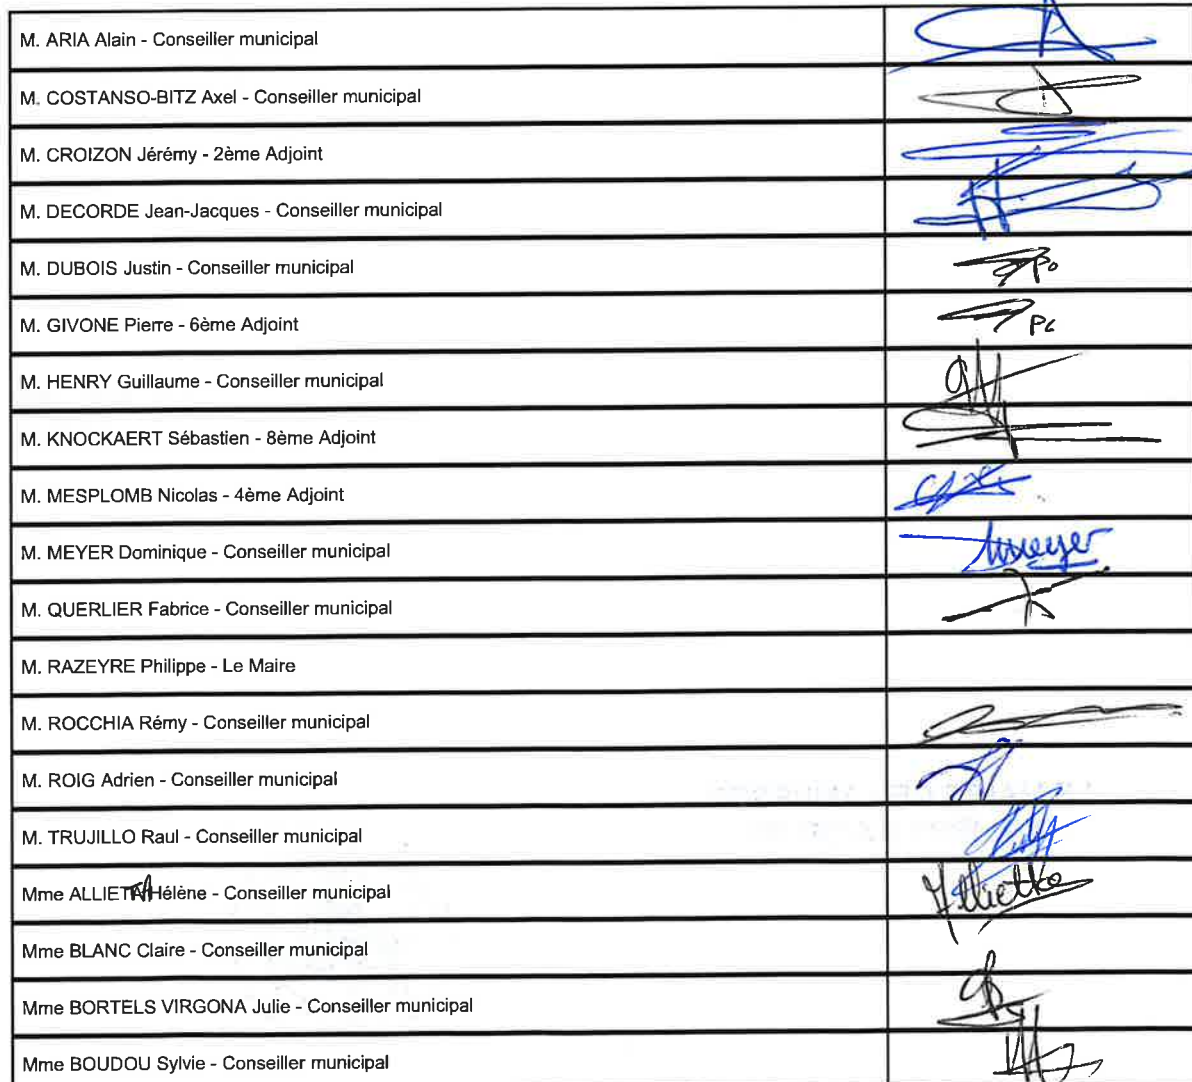 M. ARIA Alain - Conseiller municipal
M. COSTANSO-BITZ Axel - Conseiller municipal
M. CROIZON Jérémy - 2ème Adjoint
M. DECORDE Jean-Jacques - Conseiller municipal
M. DUBOIS Justin - Conseiller municipal Po
M. GIVONE Pierre - 6ème Adjoint
M. HENRY Guillaume - Conseiller municipal
M. KNOCKAERT Sébastien - 8ème Adjoint
M. MESPLOMB Nicolas - 4ème Adjoint
M. MEYER Dominique - Conseiller municipal meyer
M. QUERLIER Fabrice - Conseiller municipal
M. RAZEYRE Philippe - Le Maire
M. ROCCHIA Rémy - Conseiller municipal
M. ROIG Adrien - Conseiller municipal
M. TRUJILLO Raul - Conseiller municipal
Mme ALLIETTA Hélène - Conseiller municipal
Mme BLANC Claire - Conseiller municipal
Mme BORTELS VIRGONA Julie - Conseiller municipal
Mme BOUDOU Sylvie - Conseiller municipal